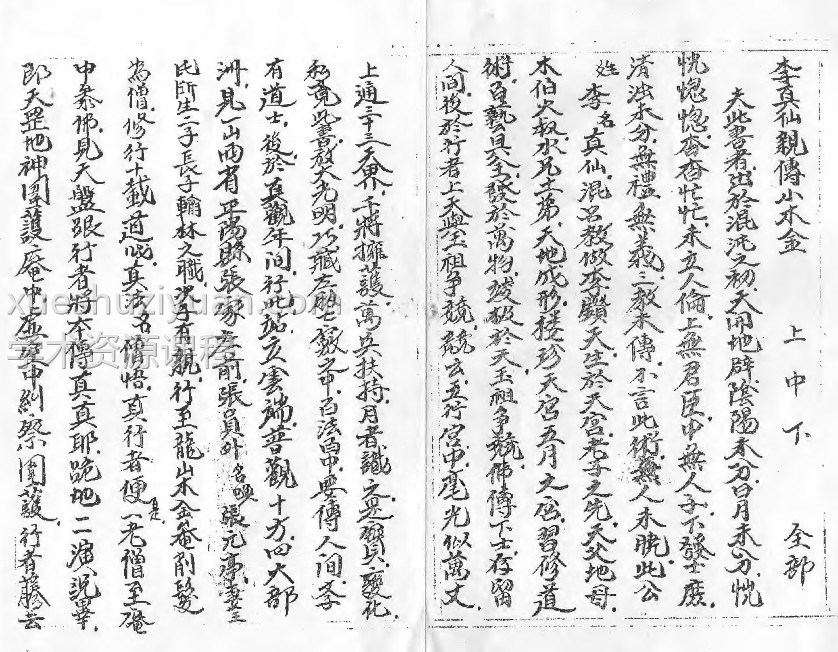 李真仙親傳小木金　上中下　全部
夫此書者出於混沌之初天開地辟陰陽未分日月未分恍
恍惚惚杳杳忙忙未立人倫上無君臣中無人子下發士廢
清濁未分無禮無義一教未傳不言此術無人未曉此公
姓李名真仙混名教做李顯天生於天宮老子之先天父地母
木伯火叔水兄土弟天地成形 天宮五月之 習修道
術 藝具全發於萬物 於天玉祖爭競佛傳下士存留
人間後於行者上天與玉祖爭競競云五行宮中毫光似萬丈
上通三十三天界千將擁護萬兵扶持月者識之是寶貝變化
此書放大光明巧藏 中百法百中要傳人間
有道士後於真觀年間行此站立雲端普觀十方四大部
洲見一山西省 縣張家 前張員外名喚張元亭妻王
氏所生二子長子翰林之職次子有 行至龍山木金菴削髮
為僧修行十載道 真法名僧悟真行者便 一老僧至菴
中參佛見天盤張行者將本傳真真耶跪地二演説畢
即天罡地神圍護菴中虛空中糾察圍護行者 去
xuezhuziyuan.com
学术资源课程